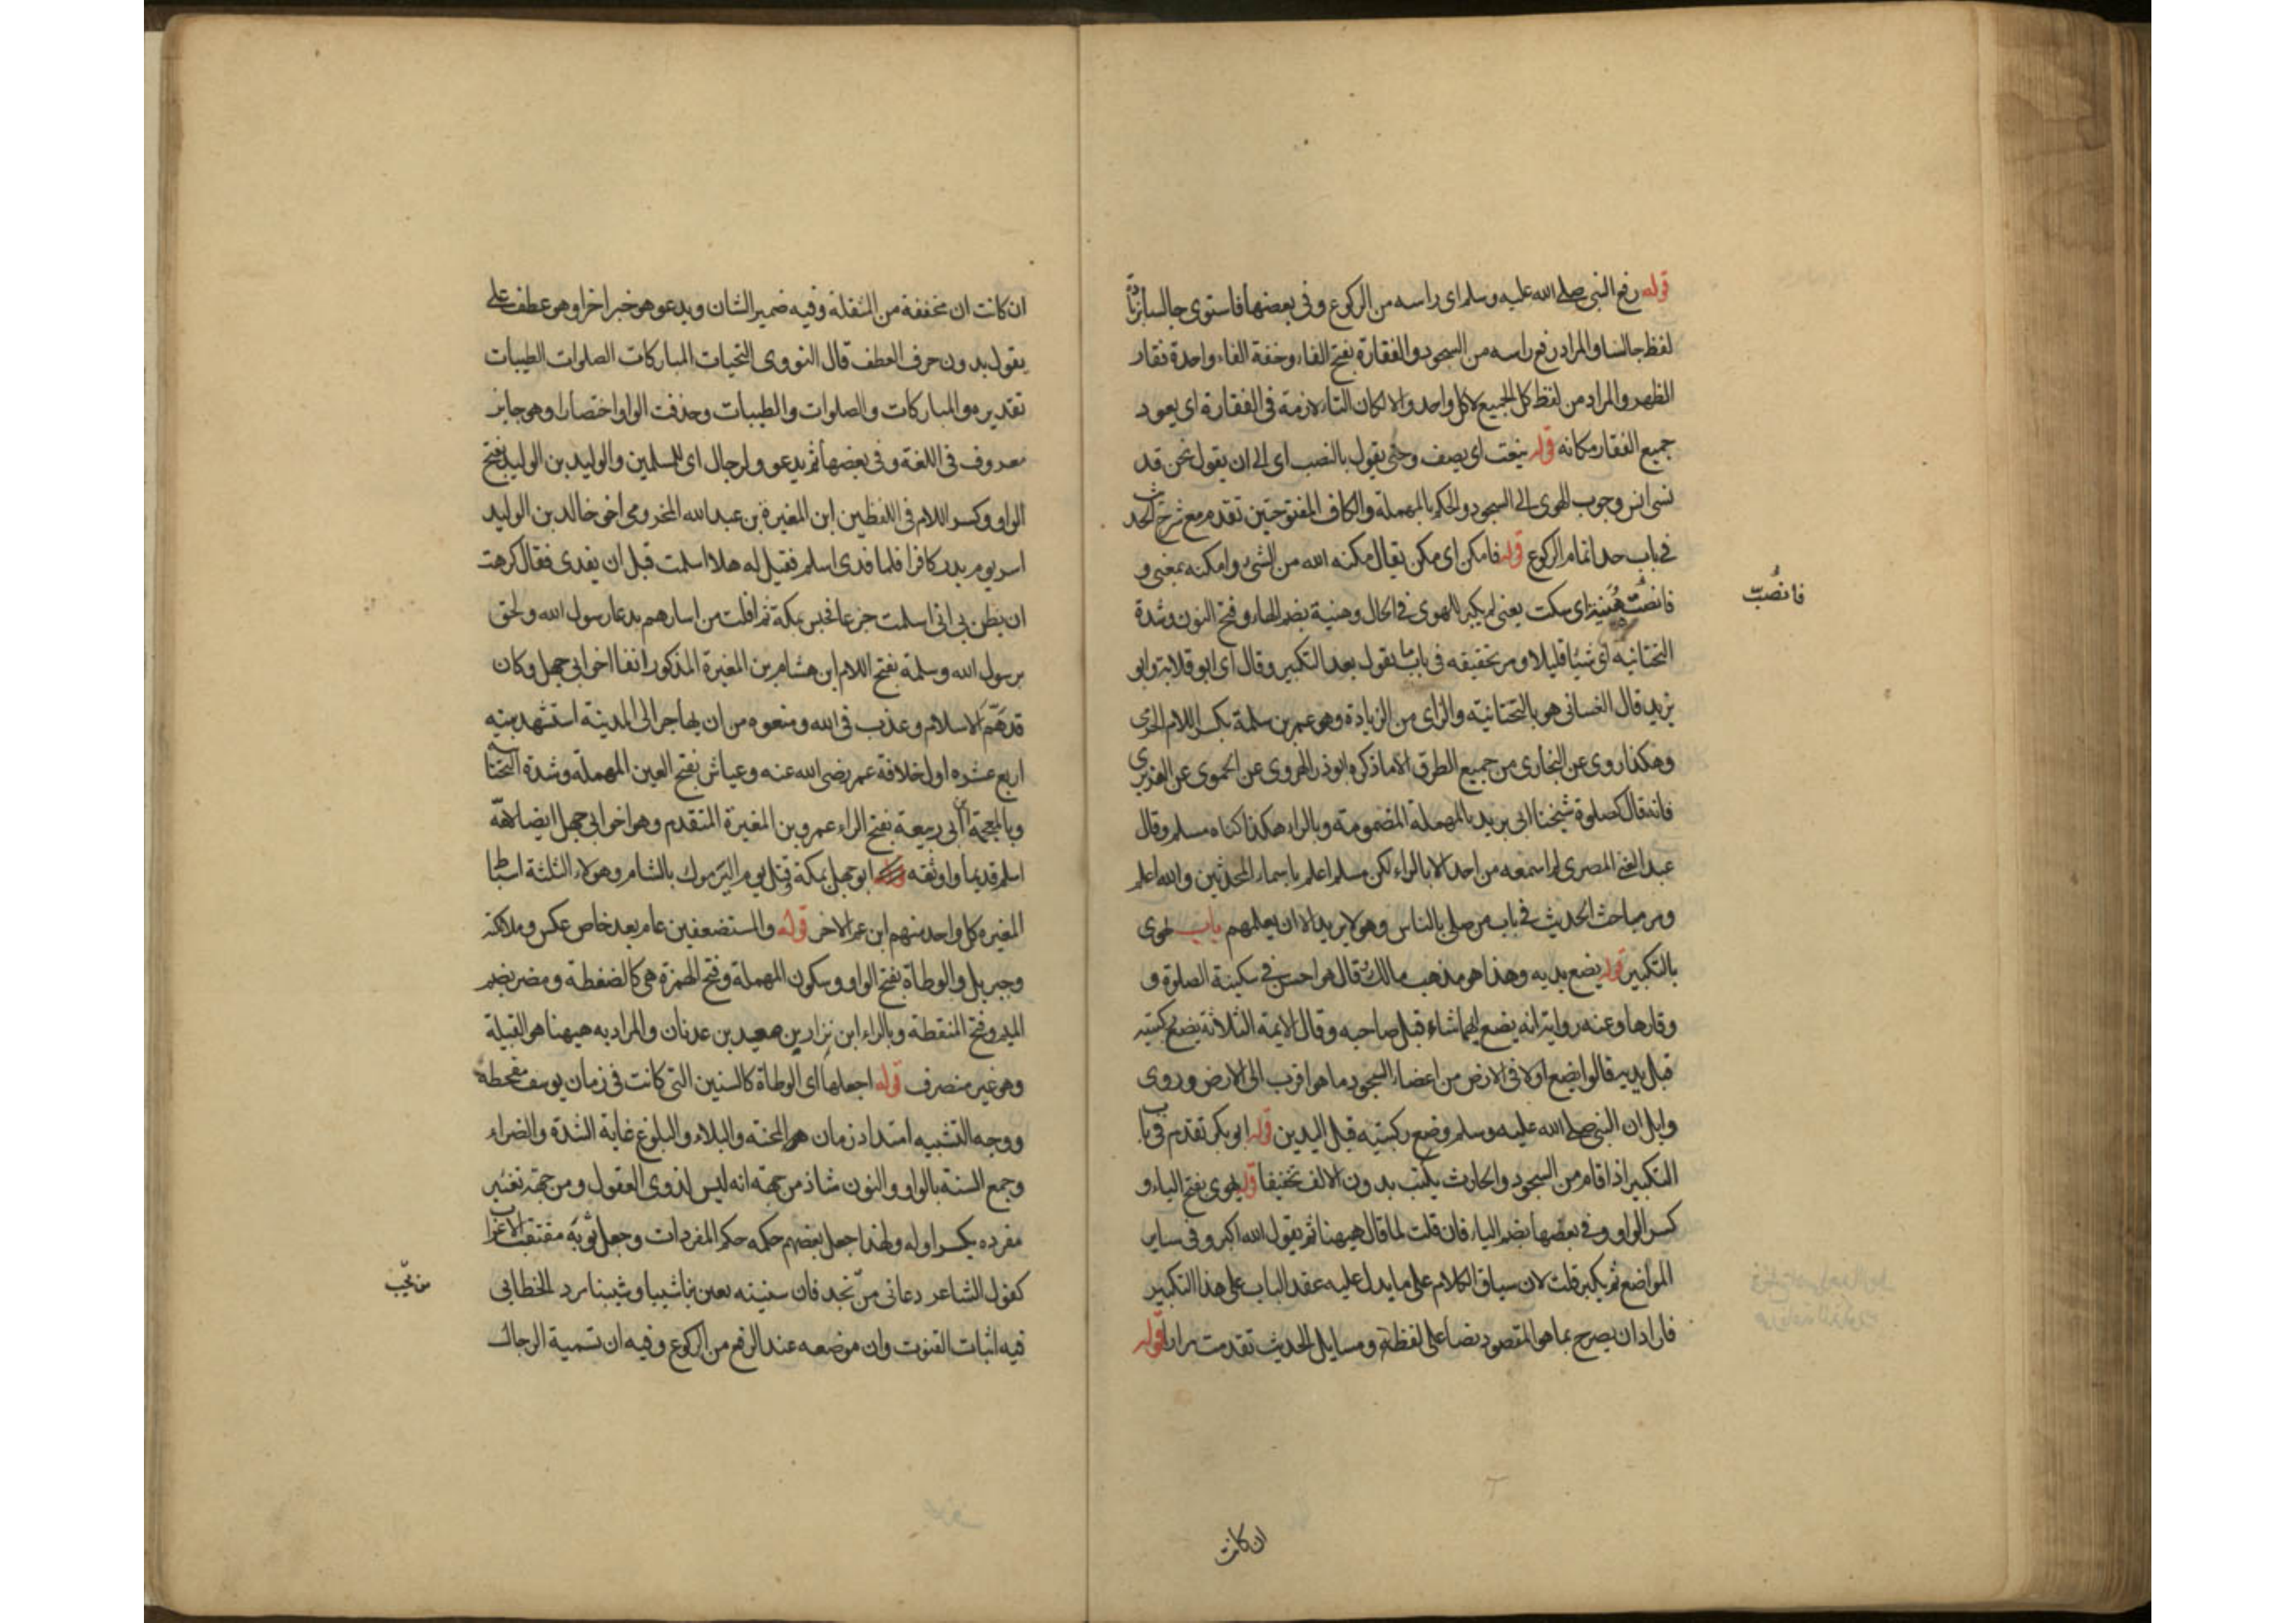 قوله رفع النبي صلى الله عليه وسلم اى راسه من الركوع وفى بعضها فاستوى جالسا بزيادة
لفظ جالسا والمراد رفع راسه من السجود والفقارة بفتح الفاء وخفة القاف واحدة فقار
الظهر والمراد من لفظ كل الجميع لا كل واحد والا لكان التاء لازمة فى الفقارة اى يعود
جميع الفقار مكانه قوله ينعت اى يصف وحتى يقول بالنصب اى الى ان يقول نحن قد
نسى انس وجوب الهوى الى السجود والحكم بالمهملة والكاف المفتوحتين تقدم مع شرح الحديث
فى باب حد اتمام الركوع قوله فامكن اى مكن يقال مكنه الله من الشى وامكنه بمعنى و
فانصت هنية اى سكت يعنى لم يكبر للهوى فى الحال وهنية بضم الهاء وفتح النون وشدة
التحتانية اى شيئا قليلا ومر تحقيقه فى باب ما يقول بعد التكبير وقال اى ابو قلابة وابو
يزيد قال الغسانى هو بالتحتانية والزاى من الزيادة وهو عمرو بن سلمة بكسر اللام الجرمى
وهكذا روى عن البخارى من جميع الطرق الا ما ذكره ابو ذر الهروى عن الحموى عن الفربرى
فانه قال كصلوة شيخنا ابى بريد بالمهملة المضمومة وبالراء هكذا كناه مسلم وقال
عبد الغنى المصرى لم اسمعه من احد الا بالزاء لكن مسلم اعلم باسماء المحدثين والله اعلم
ومر مباحث الحديث فى باب من صلى بالناس وهو لا يريد الا ان يعلمهم باب يهوى
بالتكبير قوله يضع يديه وهذا هو مذهب مالك قال هو احسن فى سكينة الصلوة و
وقارها وعنه رواية انه يضع ايهما شاء قبل صاحبه وقال الايمة الثلاثة يضع ركبتيه
قبل يديه قالوا يضع اولا فى الارض من اعضاء السجود ما هو اقرب الى الارض وروى
وايل ان النبى صلى الله عليه وسلم وضع ركبتيه قبل اليدين قوله ابو بكر تقدم فى باب
التكبير اذا قام من السجود والحارث يكتب بدون الالف تخفيفا قوله يهوى بفتح الياء و
كسر الواو وفى بعضها بضم الياء فان قلت لم قال هيهنا ثم يقول الله اكبر وفى ساير
المواضع ثم يكبر قلت لان سياق الكلام على ما يدل عليه عقد الباب على هذا التكبير
فاراد ان يصرح بما هو المقصود نصا على لفظه ومسايل الحديث تقدمت مرارا قوله
فانصُبّ
ان كانت
ان كانت ان مخففة من الثقلة وفيه ضمير الشان ويدعو هو خبر اخر او هو عطف على
يقول بدون حرف العطف قال النووى التحيات المباركات الصلوات الطيبات
تقديره والمباركات والصلوات والطيبات وحذفت الواو اختصارا وهو جايز
معروف فى اللغة وفى بعضها ثم يدعو ولرجال اى للمسلمين والوليد بن الوليد بفتح
الواو وكسر اللام فى اللفظين ابن المغيرة بن عبد الله المخزومى اخو خالد بن الوليد
اسر يوم بدر كافرا فلما فدى اسلم فقيل له هلا اسلمت قبل ان يفدى فقال كرهت
ان يظن بى انى اسلمت جزعا فحبس بمكة ثم افلت من اسارهم بدعا رسول الله ولحق
برسول الله وسلمة بفتح اللام ابن هشام بن المغيرة المذكور انفا اخو ابى جهل وكان
قديم الاسلام وعذب فى الله ومنعوه من ان يهاجر الى المدينة استشهد سنة
اربع عشره اول خلافة عمر رضى الله عنه وعياش بفتح العين المهملة وشدة التحتانية
وبالمعجمة ابن ابى ربيعة بفتح الراء عمرو بن المغيرة المتقدم وهو اخو ابى جهل ايضا لامه
اسلم قديما واوثقه ابو جهل بمكة وقتل يوم اليرموك بالشام وهولاء الثلثة اسباط
المغيره كل واحد منهم ابن عم الاخر قوله والمستضعفين عام بعد خاص عكس وملائكته
وجبريل والوطاة بفتح الواو وسكون المهملة وفتح الهمزة هى كالضغطة ومضر بضم
الميم وفتح المنقطة وبالراء ابن نزار بن معد بن عدنان والمراد به هيهنا هو القبيلة
وهو غير منصرف قوله اجعلها اى الوطاة كالسنين التى كانت فى زمان يوسف مقحطة
ووجه التشبيه امتداد زمان المحنة والبلاء والبلوغ غاية الشدة والضراء
وجمع السنة بالواو والنون شاذ من جهة انه ليس لذوى العقول ومن جهة تغيير
مفرده بكسر اوله ولهذا جعل بعضهم حكمه حكم المفردات وجعل نونه متعقب الاعراب
كقول الشاعر دعانى من نجد فان سنينه لعبن بنا شيبا وشيبننا مرد الخطابى
فيه اثبات القنوت وان موضعه عند الرفع من الركوع وفيه ان تسمية الرجال